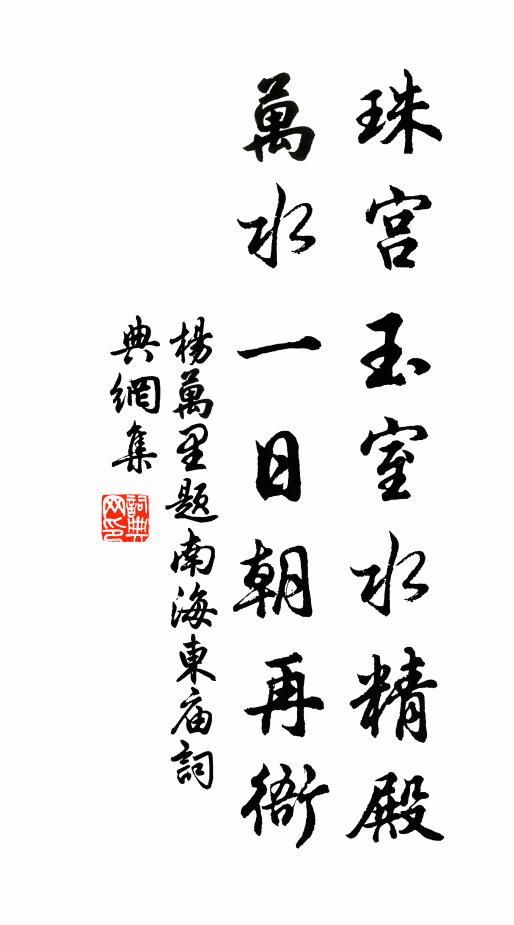 珠宮玉室水精殿
萬水一日朝再衙
楊萬里題南海東庙詞
典網集
詞典网印